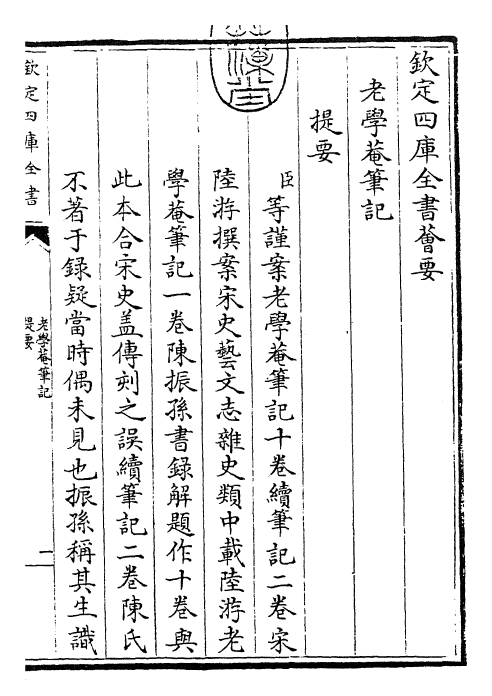 欽定四庫全書薈要
老學菴筆記
提要
臣等謹案老學菴筆記十卷續筆記二卷宋
陸游撰案宋史藝文志雜史類中載陸游老
學菴筆記一卷陳振孫書録解題作十卷與
此本合宋史盖傳刻之誤續筆記二卷陳氏
不著于録疑當時偶未見也振孫稱其生識
欽定四庫全書
老學菴筆記
提要
一